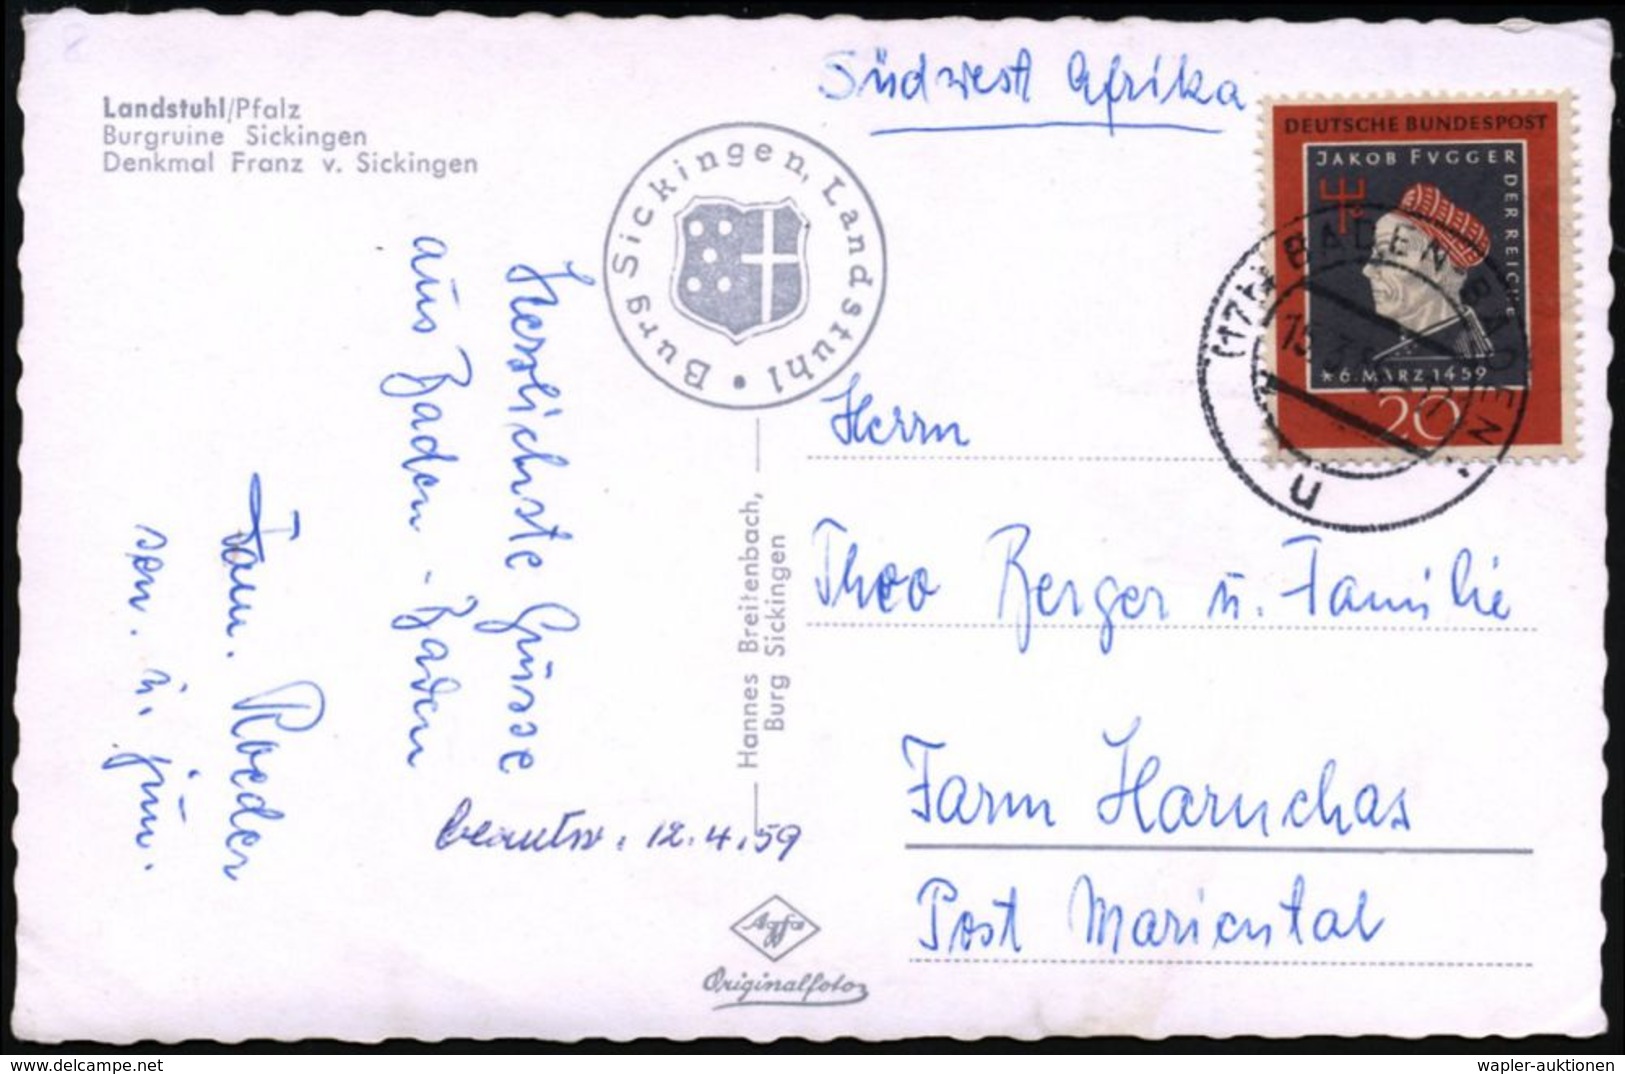 Landstuhl/Pfalz
Burgruine Sickingen
Denkmal Franz v. Sickingen
Burg Sickingen, Landstuhl •
Herzlichste Grüsse
aus Baden-Baden
Fam. Roeder
sen. u. jun.
beantw. 12.4.59
Hannes Breitenbach,
Burg Sickingen
Agfa
Originalfoto
Südwest Afrika
DEUTSCHE BUNDESPOST
JAKOB FVGGER
DER REICHE
* 6. MÄRZ 1459
20
(17b) BADEN-BADEN
n
Herrn
Theo Berger u. Familie
Farm Haruchas
Post Mariental
delcampe.net
wapler-auktionen